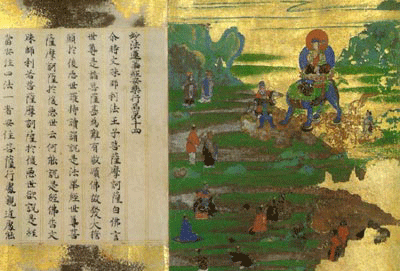 妙法蓮華經安樂行品第十四
尒時文殊師利法王子菩薩摩訶薩白佛言
世尊是諸菩薩甚為難有敬順佛故發大誓
願於後惡世護持讀說是法華經世尊菩
薩摩訶薩於後惡世云何能說是經佛告文
殊師利若菩薩摩訶薩於後惡世欲說是經
當安住四法一者安住菩薩行處親近處能